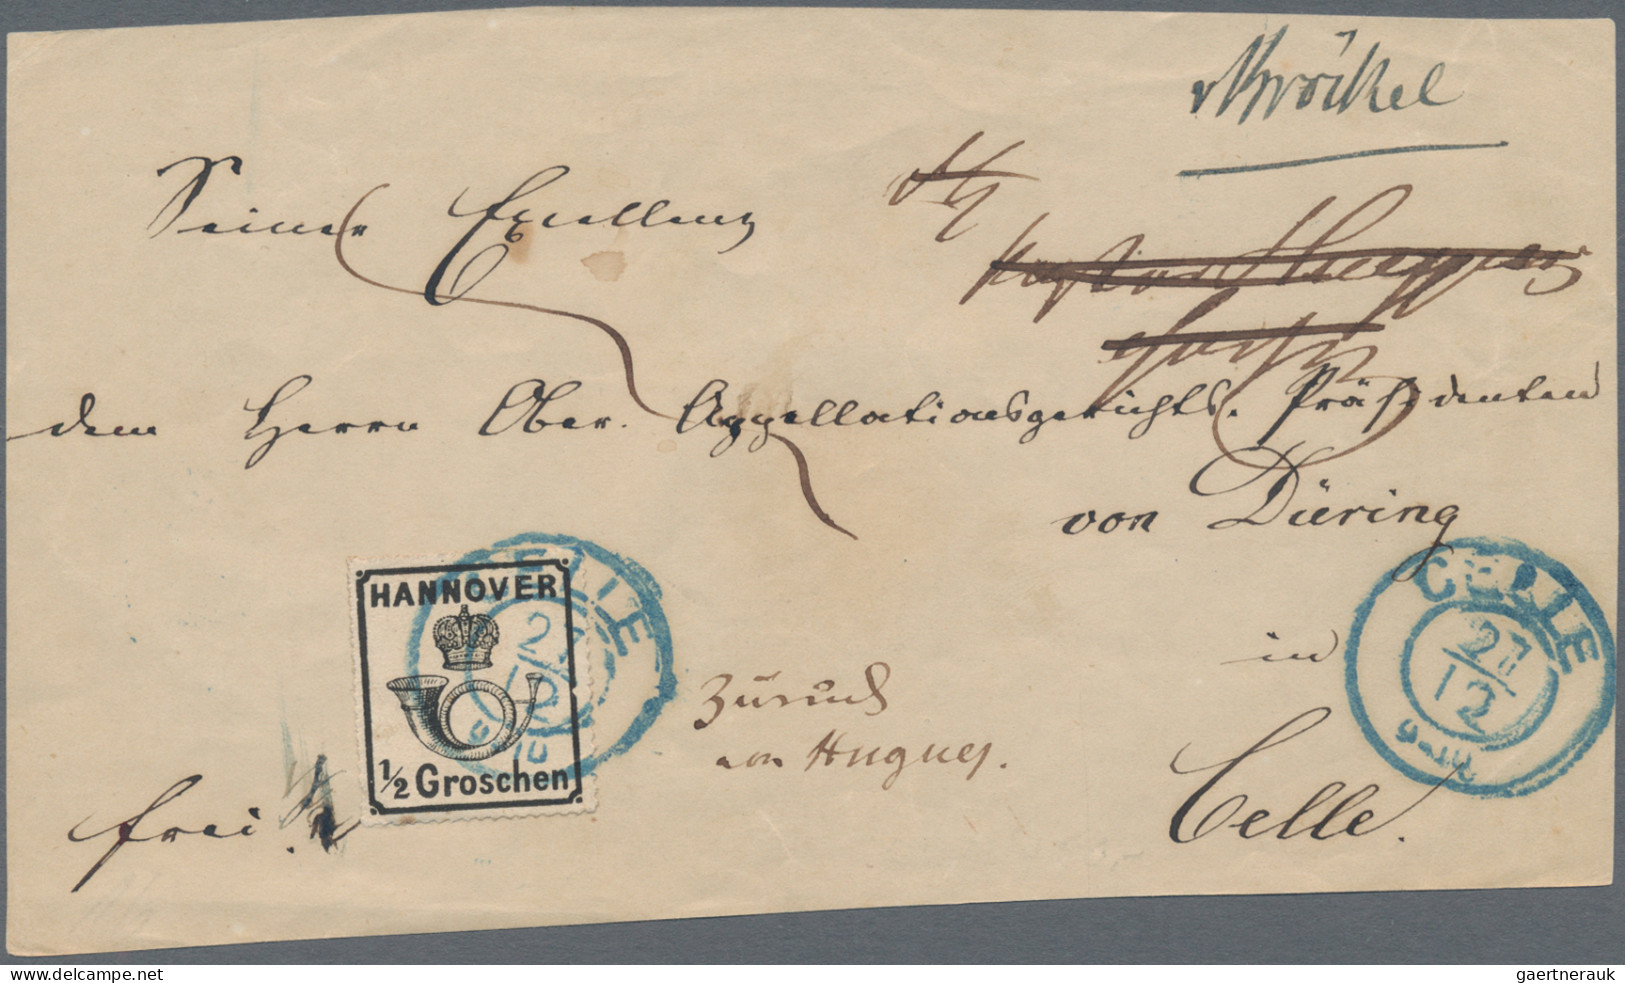 v Bröckel
Seiner Excellenz
dem Herrn Ober. Appellationsgerichts. Präsidenten
von Düring
in
Celle.
frei.
HANNOVER
1/2 Groschen
CELLE
CELLE
27
12
zurück
von Hugues.
delcampe.net
gaertnerauk